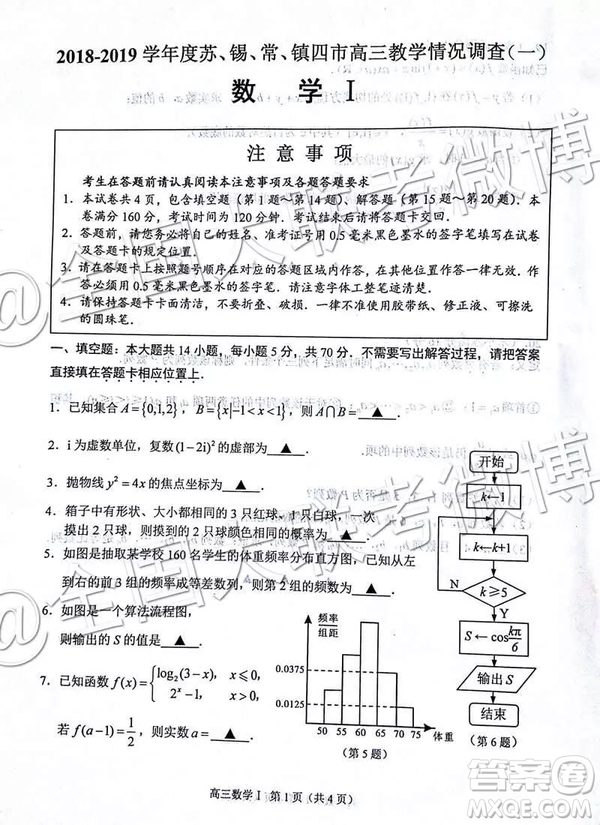 2018-2019 学年度苏、锡、常、镇四市高三教学情况调查(一)
数 学 I
注 意 事 项
考生在答题前请认真阅读本注意事项及各题答题要求
1. 本试卷共 4 页，包含填空题（第 1 题～第 14 题）、解答题（第 15 题～第 20 题）．本
卷满分 160 分，考试时间为 120 分钟．考试结束后请将答题卡交回．
2. 答题前，请您务必将自己的姓名、准考证号用 0.5 毫米黑色墨水的签字笔填写在试卷
及答题卡的规定位置．
3. 请在答题卡上按照题号顺序在对应的答题区域内作答，在其他位置作答一律无效．作
答必须用 0.5 毫米黑色墨水的签字笔．请注意字体工整笔迹清楚．
4. 请保持答题卡卡面清洁，不要折叠、破损．一律不准使用胶带纸、修正液、可擦洗
的圆珠笔．
一、填空题：本大题共 14 小题，每小题 5 分，共 70 分．不需要写出解答过程，请把答案
直接填在答题卡相应位置上．
1. 已知集合 A={0,1,2}，B={x|−1<x<1}，则 A∩B= ▲ ．
2. i 为虚数单位，复数 (1−2i)² 的虚部为 ▲ ．
3. 抛物线 y²=4x 的焦点坐标为 ▲ ．
4. 箱子中有形状、大小都相同的 3 只红球，1 只白球，一次
摸出 2 只球，则摸到的 2 只球颜色相同的概率为 ▲ ．
5. 如图是抽取某学校 160 名学生的体重频率分布直方图，已知从左
到右的前 3 组的频率成等差数列，则第 2 组的频数为 ▲ ．
6. 如图是一个算法流程图，
则输出的 S 的值是 ▲ ．
7. 已知函数 f(x)={log₂(3−x), x≤0,
2ˣ−1, x>0,
若 f(a−1)=1/2，则实数 a= ▲ ．
频率
组距
0.0375
0.0125
50 55 60 65 70 75 体重
(第 5 题)
开始
k←1
k←k+1
N
k≥5
Y
S←cos kπ/6
输出 S
结束
(第 6 题)
高三数学 I 第 1 页（共 4 页）
@全国大联考微博
@全国大联考微博
答案圈
MXQE.COM